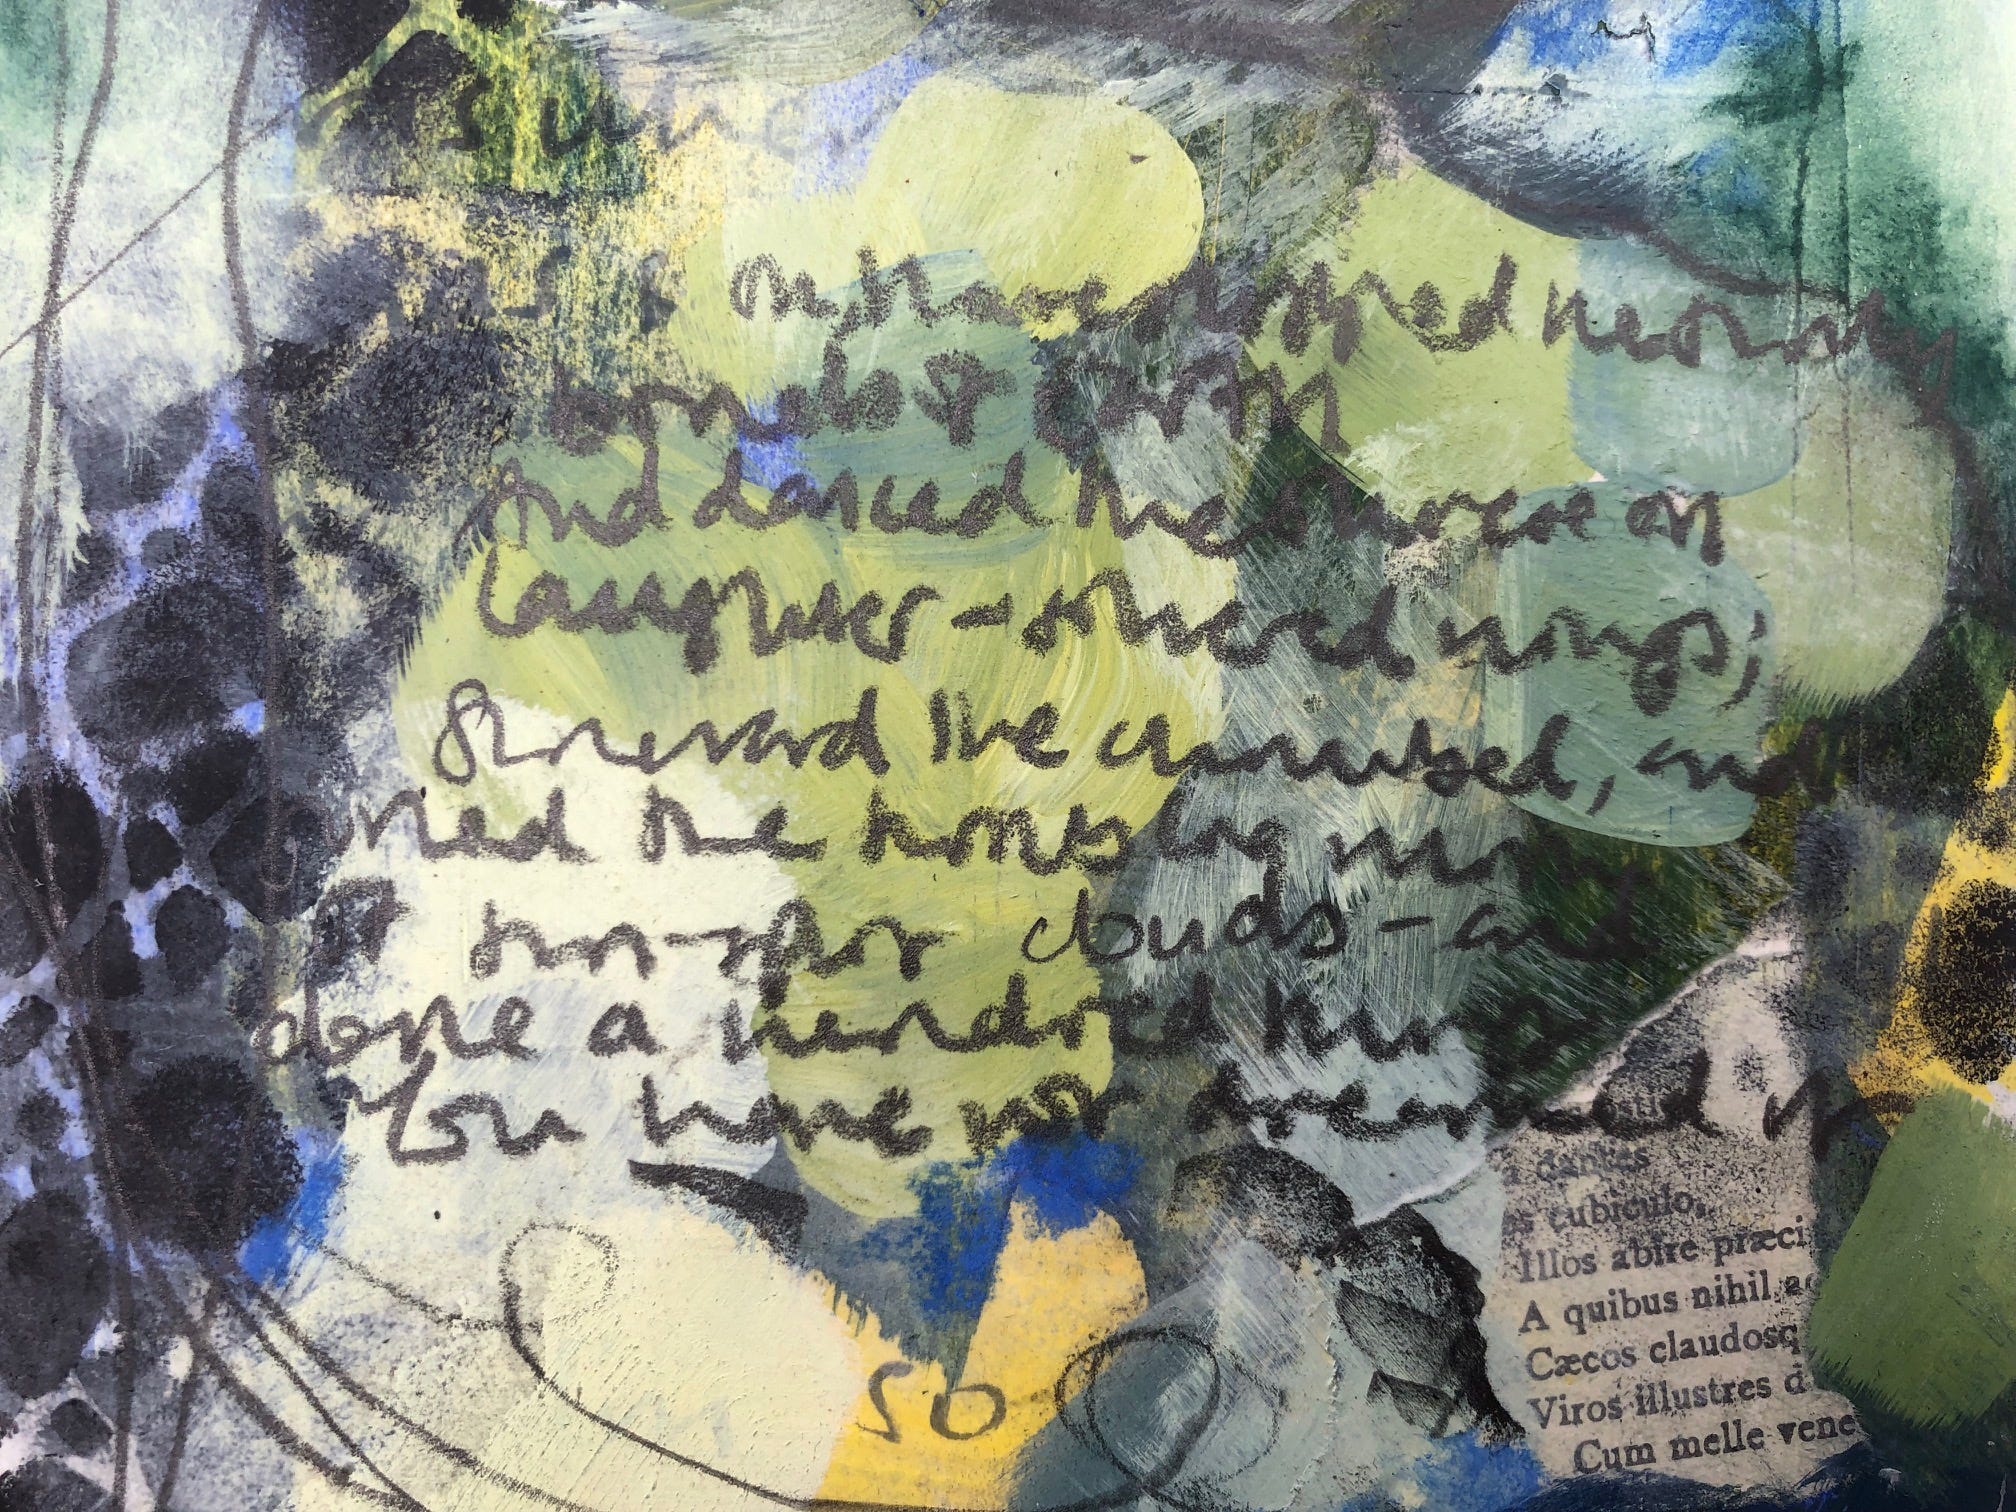 I have slipped the surly
bonds of earth
And danced the on
laughter - silvered wings;
Sunward I've climbed, and
the
of sun-split clouds - and
done a hundred
You have not dreamed of
dantes
cubiculo,
Illos abire præci
A quibus nihil a
Cæcos claudosq
Viros illustres d
Cum melle vene
so